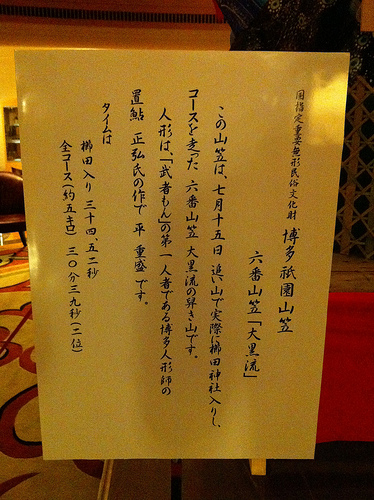 国指定重要無形民俗文化財 博多祇園山笠
六番山笠「大黒流」
この山笠は、七月十五日 追い山で実際に櫛田神社入りし、
コースを走った 六番山笠 大黒流の舁き山です。
人形は、「武者もん」の第一人者である博多人形師の
置鮎 正弘氏の作で 平 重盛 です。
タイムは
櫛田入り 三十四.五二秒
全コース(約五キロ) 三〇分三九秒(二位)